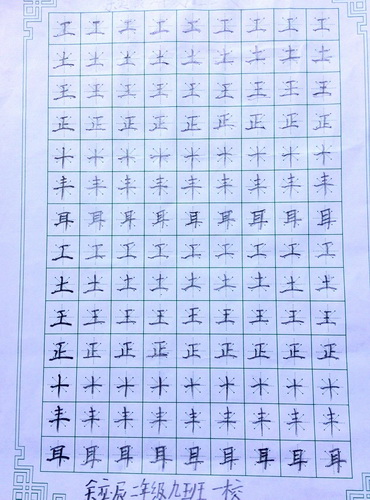 工工工工工工工工工
土土土土土土土土土
王王王王王王王王王
正正正正正正正正正
十十十十十十十十十
丰丰丰丰丰丰丰丰丰
耳耳耳耳耳耳耳耳耳
工工工工工工工工工
土土土土土土土土土
王王王王王王王王王
正正正正正正正正正
十十十十十十十十十
丰丰丰丰丰丰丰丰丰
耳耳耳耳耳耳耳耳耳
二年级九班一校